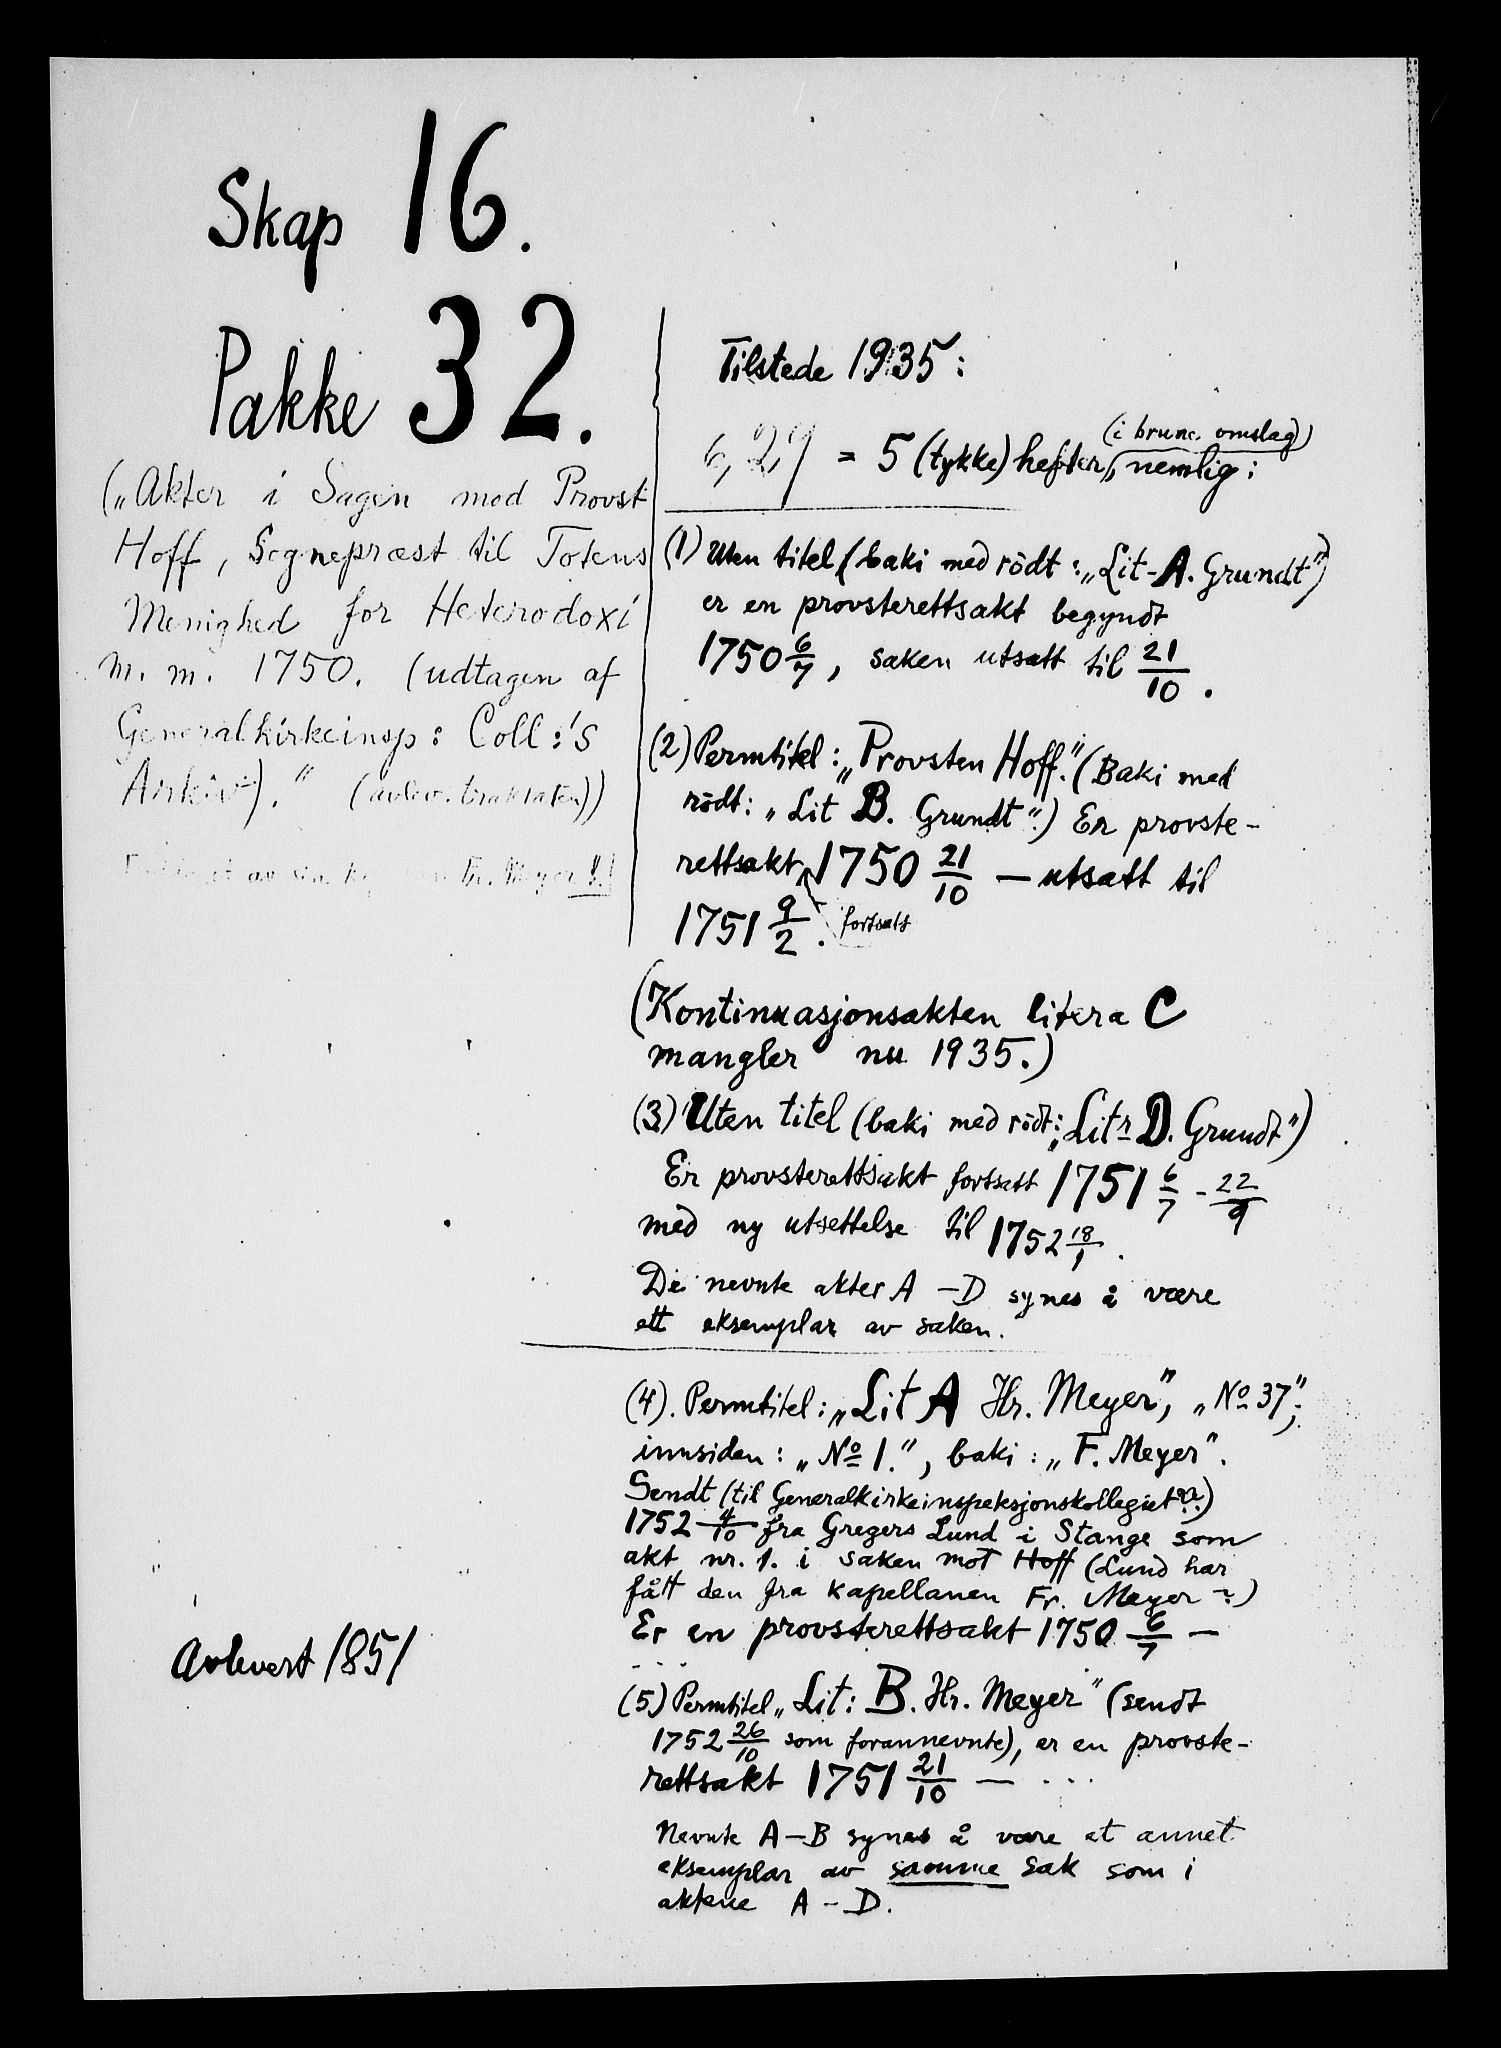 Skap 16.
Pakke 32.
(„Akter i Sagen mod Provst
Hoff, Sognepræst til Totens
Menighed for Heterodoxi
m. m. 1750. (udtagen af
Generalkirkeinsp: Coll:'s
Arkiv).“ (avlev. traktaten))
av Fr. Meyer !!
Avlevert 1851
Tilstede 1935:
(i brune omslag)
= 5 (tykke) hefter, nemlig:
(1) Uten titel (baki med rödt: „Lit-A. Grundt“)
er en provsterettsakt begyndt
1750 6/7, saken utsatt til 21/10.
(2) Permtitel: „Provsten Hoff.“ (Baki med
rödt: „Lit B. Grundt“.) Er provste-
rettsakt fortsatt 1750 21/10 — utsatt til
1751 9/2.
(Kontinuasjonsakten litera C
mangler nu 1935.)
(3) Uten titel (baki med rödt: „Litr D. Grundt“)
Er provsterettsakt fortsatt 1751 6/7 - 22/9
med ny utsettelse til 1752 18/1.
De nevnte akter A — D synes å være
ett eksemplar av saken.
(4). Permtitel: „Lit A Hr. Meyer“, „No 37“;
innsiden: „No 1.“, baki: „F. Meyer“.
Sendt (til Generalkirkeinspeksjonskollegiet??)
1752 4/10 fra Gregers Lund i Stange som
akt nr. 1. i saken mot Hoff (Lund har
fått den fra kapellanen Fr. Meyer ?)
Er en provsterettsakt 1750 6/7 —
....
(5) Permtitel „Lit: B. Hr. Meyer“ (sendt
1752 26/10 som forannevnte), er en provste-
rettsakt 1751 21/10 — ...
Nevnte A — B synes å være et annet
eksemplar av samme sak som i
aktene A — D.